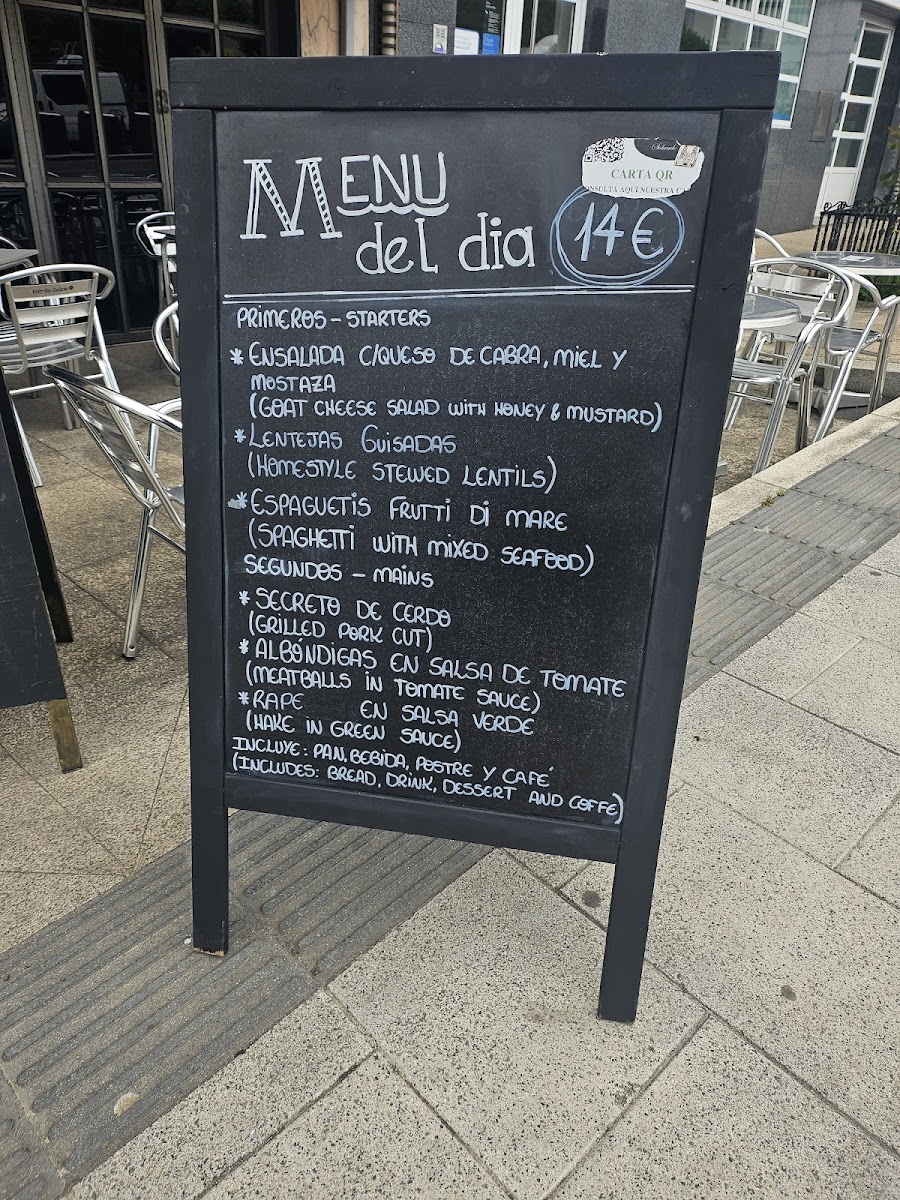 MENU
del dia
14 €
CARTA QR
CONSULTA AQUÍ NUESTRA CA
PRIMEROS - STARTERS
* ENSALADA C/QUESO DE CABRA, MIEL Y
MOSTAZA
(GOAT CHEESE SALAD WITH HONEY & MUSTARD)
* LENTEJAS GUISADAS
(HOMESTYLE STEWED LENTILS)
* ESPAGUETIS FRUTTI DI MARE
(SPAGHETTI WITH MIXED SEAFOOD)
SEGUNDOS - MAINS
* SECRETO DE CERDO
(GRILLED PORK CUT)
* ALBÓNDIGAS EN SALSA DE TOMATE
(MEATBALLS IN TOMATE SAUCE)
* RAPE EN SALSA VERDE
(HAKE IN GREEN SAUCE)
INCLUYE: PAN, BEBIDA, POSTRE Y CAFÉ
(INCLUDES: BREAD, DRINK, DESSERT AND COFFE)